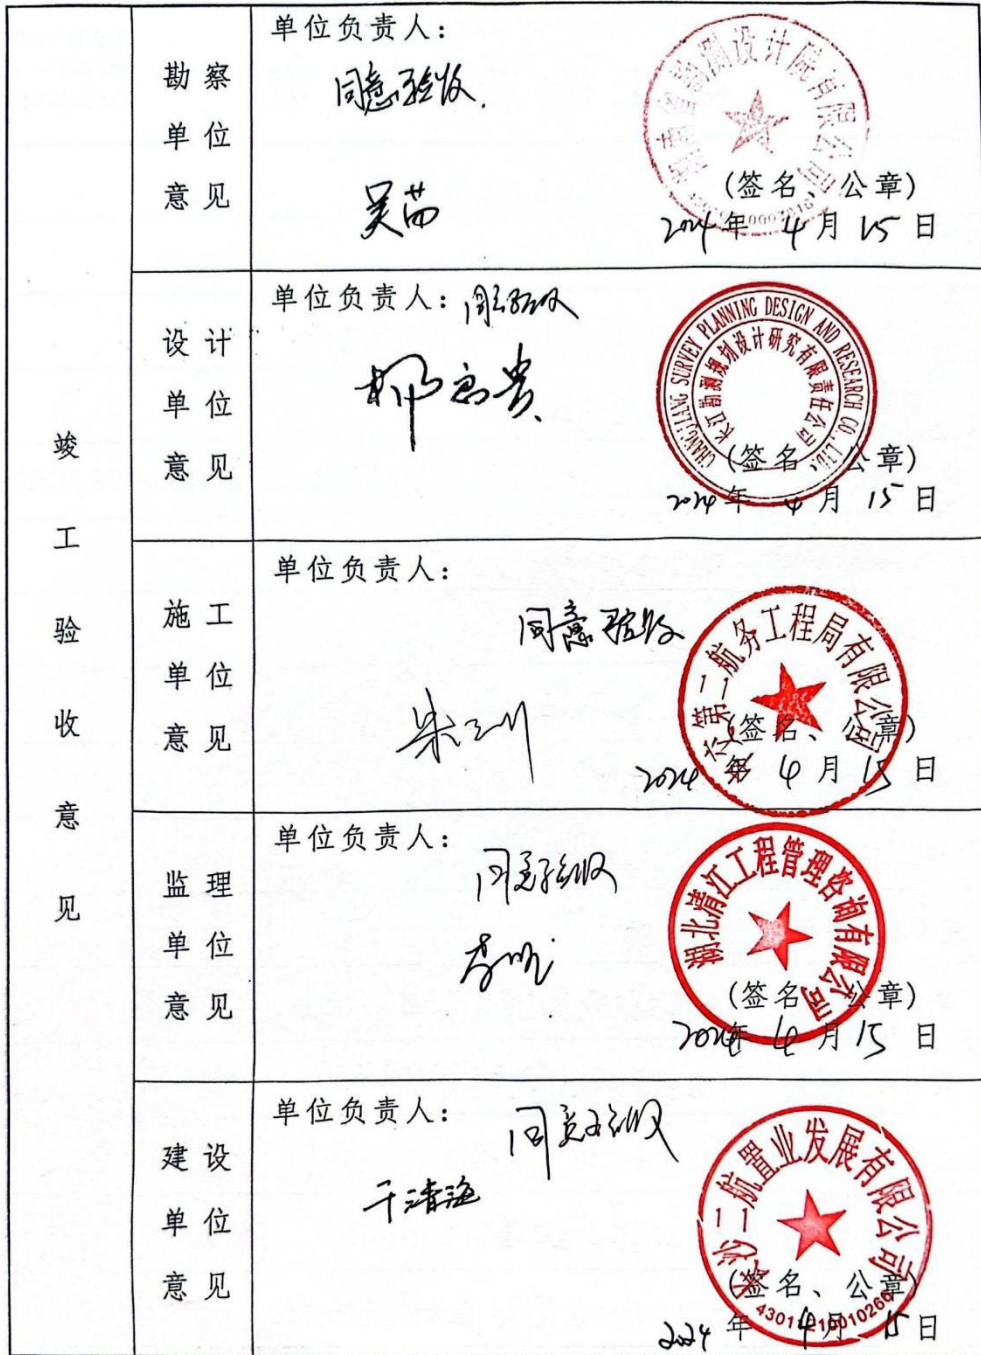 竣工验收意见
勘察单位意见
单位负责人：
同意验收.
吴苗
湖南省勘测设计院有限公司
(签名、公章)
2024年 4月 15日
设计单位意见
单位负责人：同意验收
CHANGJIANG SURVEY PLANNING DESIGN AND RESEARCH CO., LTD.
长江勘测规划设计研究有限责任公司
(签名、公章)
2024年 4月 15日
施工单位意见
单位负责人：
同意验收
中交第二航务工程局有限公司
(签名、公章)
2024年 4月 15日
监理单位意见
单位负责人：
同意验收
湖北清江工程管理咨询有限公司
(签名、公章)
2024年 4月 15日
建设单位意见
单位负责人：
同意验收
于清海
长沙二航置业发展有限公司
(签名、公章)
2024年 4月 15日